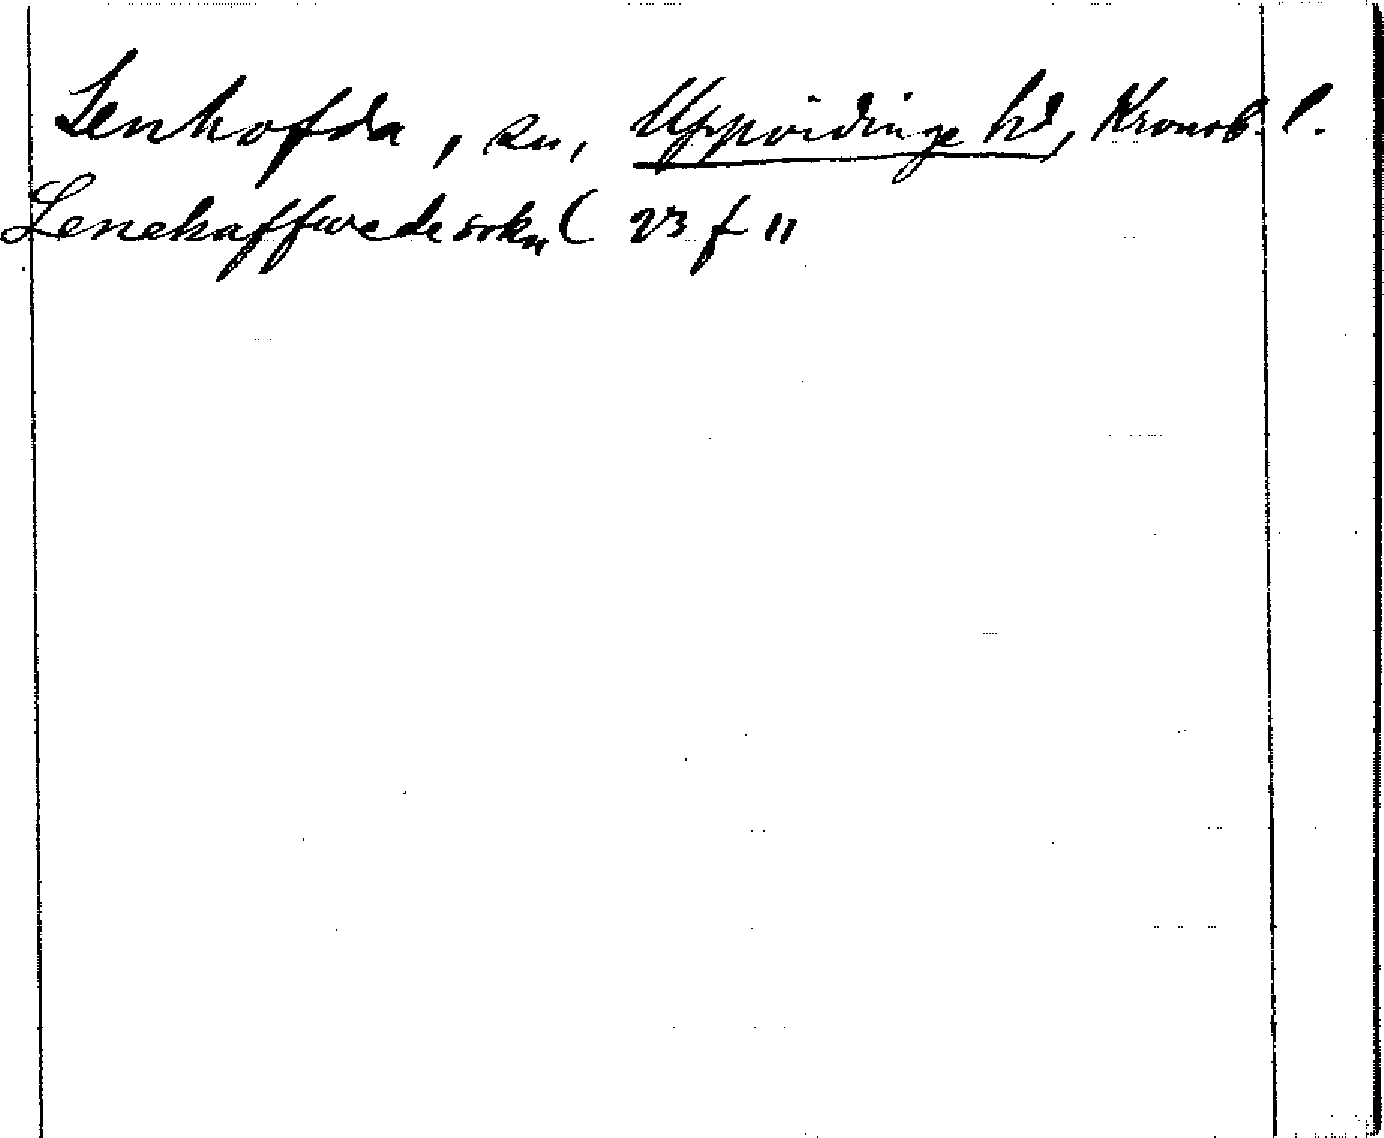 Lenhofda, sn, Uppvidinge hd, Kronob. l.
Lenehaffwede sokn ( 23 f 11